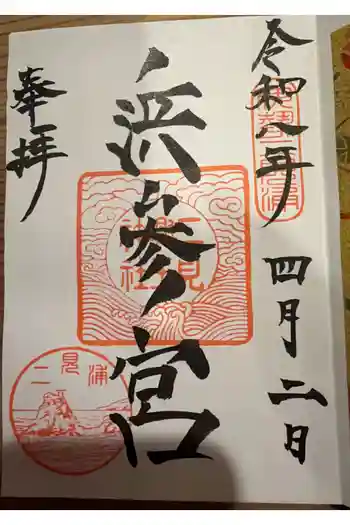 令和八年 四月二日
浜参宮
奉拝
二見
神社
二見浦